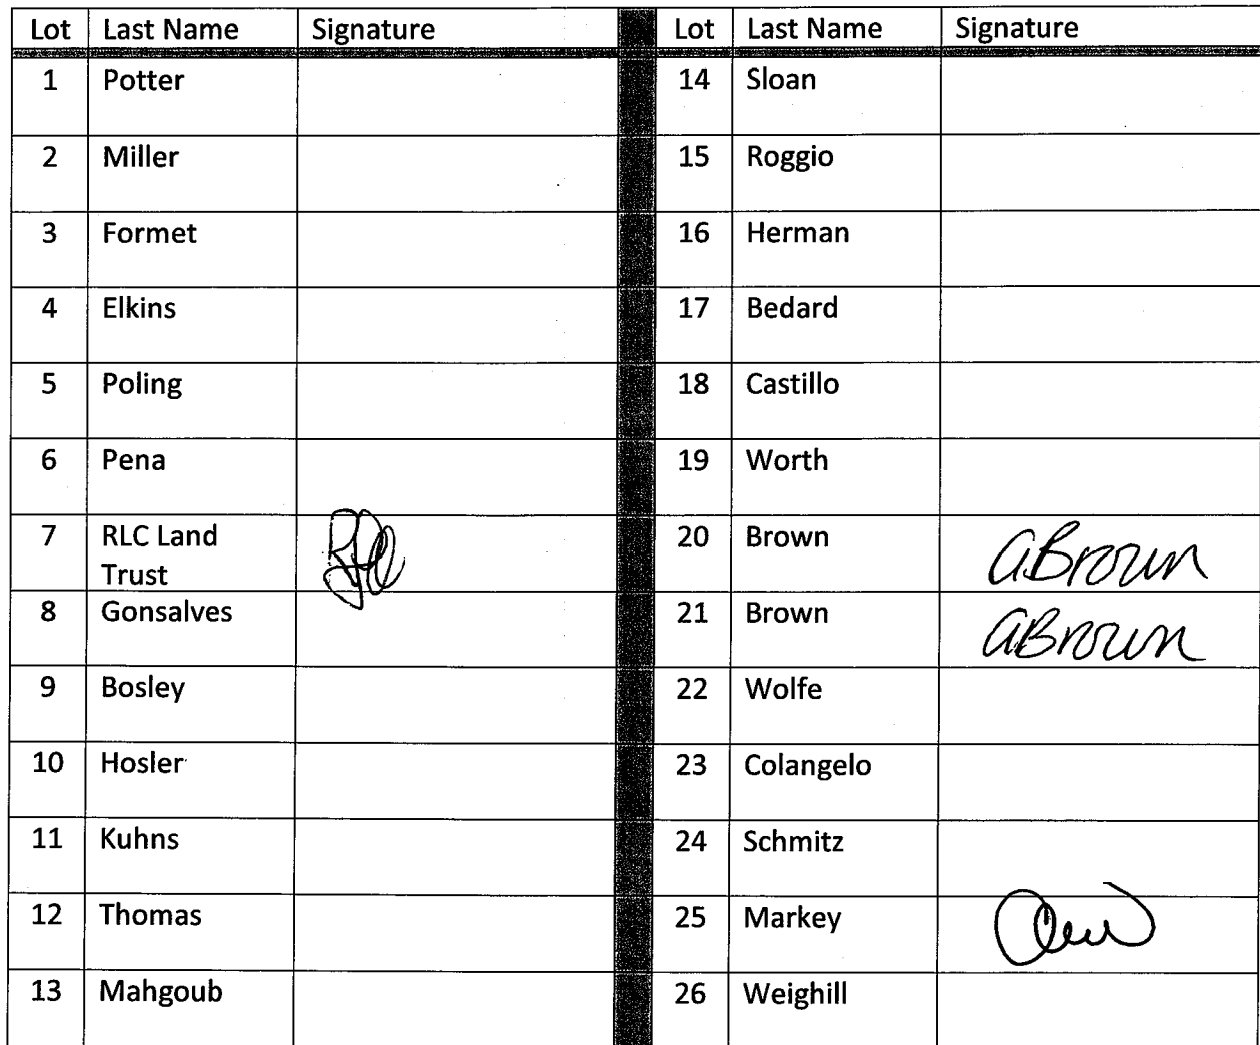 Lot Last Name Signature
1 Potter
2 Miller
3 Formet
4 Elkins
5 Poling
6 Pena
7 RLC Land
Trust
8 Gonsalves
9 Bosley
10 Hosler
11 Kuhns
12 Thomas
13 Mahgoub
Lot Last Name Signature
14 Sloan
15 Roggio
16 Herman
17 Bedard
18 Castillo
19 Worth
20 Brown aBrown
21 Brown aBrown
22 Wolfe
23 Colangelo
24 Schmitz
25 Markey
26 Weighill